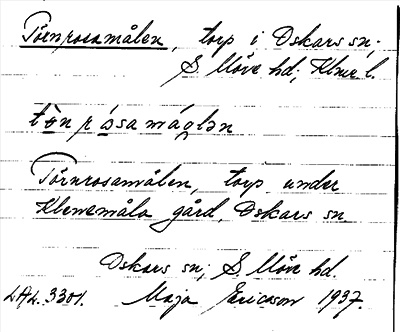 Törnrosamålen, torp i Oskars sn;
S Möre hd; Klme l.
tö̀n ròsa mά̀lən
Törnrosamålen, torp under
Klenemåla gård, Oskars sn
Oskars sn; S Möre hd.
LAL. 3301. Maja Ericson 1937.